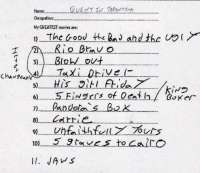 Name: QUENTIN TARANTINO
Occupation:
My GREATEST movies are:
1) The Good the Bad and the Ugly
2) Rio Bravo
3) Blow out
4) Taxi Driver
5) His Girl Friday
6) 5 Fingers of Death / King Boxer
7) Pandora's Box
8) Carrie
9) Unfaithfully Yours
10) 5 Graves to Cairo
11. JAWS